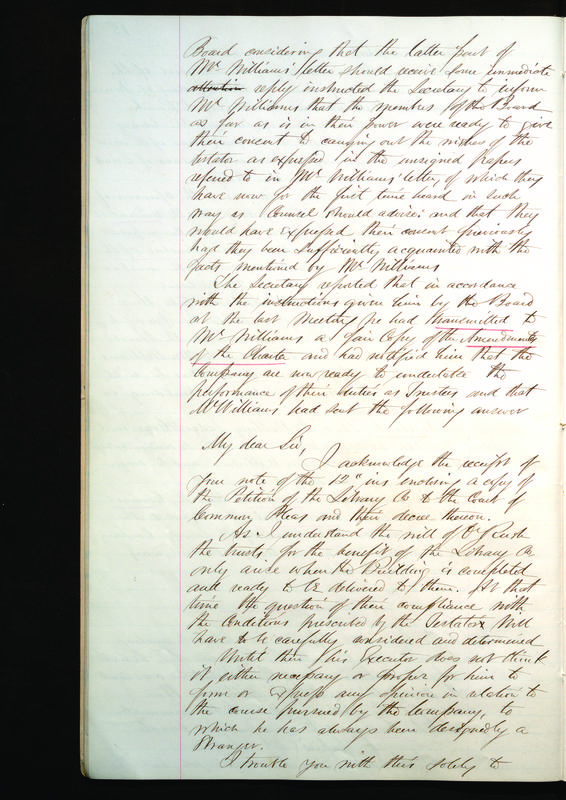 Board considering that the latter part of
Mr Williams' letter should receive some immediate
attention reply instructed the Secretary to inform
Mr Williams that the members of the Board
as far as is in their power were ready to give
their consent to carrying out the wishes of the
testator as expressed in the unsigned Papers
referred to in Mr Williams' letter, of which they
have now for the first time heard in such
way as Counsel should advise: and that they
would have expressed their consent previously
had they been sufficiently acquainted with the
facts mentioned by Mr Williams
The Secretary reported that in accordance
with the instructions given him by the Board
at the last meeting he had transmitted to
Mr Williams a fair Copy of the Amendments
of the Charter and had notified him that the
Company are now ready to undertake the
performance of their duties as Trustees and that
Mr Williams had sent the following answer
My dear Sir,
I acknowledge the receipt of
your note of the 12" ins enclosing a copy of
the Petition of the Library Co to the Court of
Common Pleas and their decree thereon.
As I understand the will of Dr Rush
the trusts for the benefit of the Library Co
only arise when the Building is completed
and ready to be delivered to them. At that
time the question of their compliance with
the Conditions prescribed by the Testators Will
have to be carefully considered and determined
Until then his Executor does not think
it either necessary or proper for him to
form or express any opinion in relation to
the course pursued by the Company, to
which he has always been designedly a
Stranger.
I trouble you with this solely to